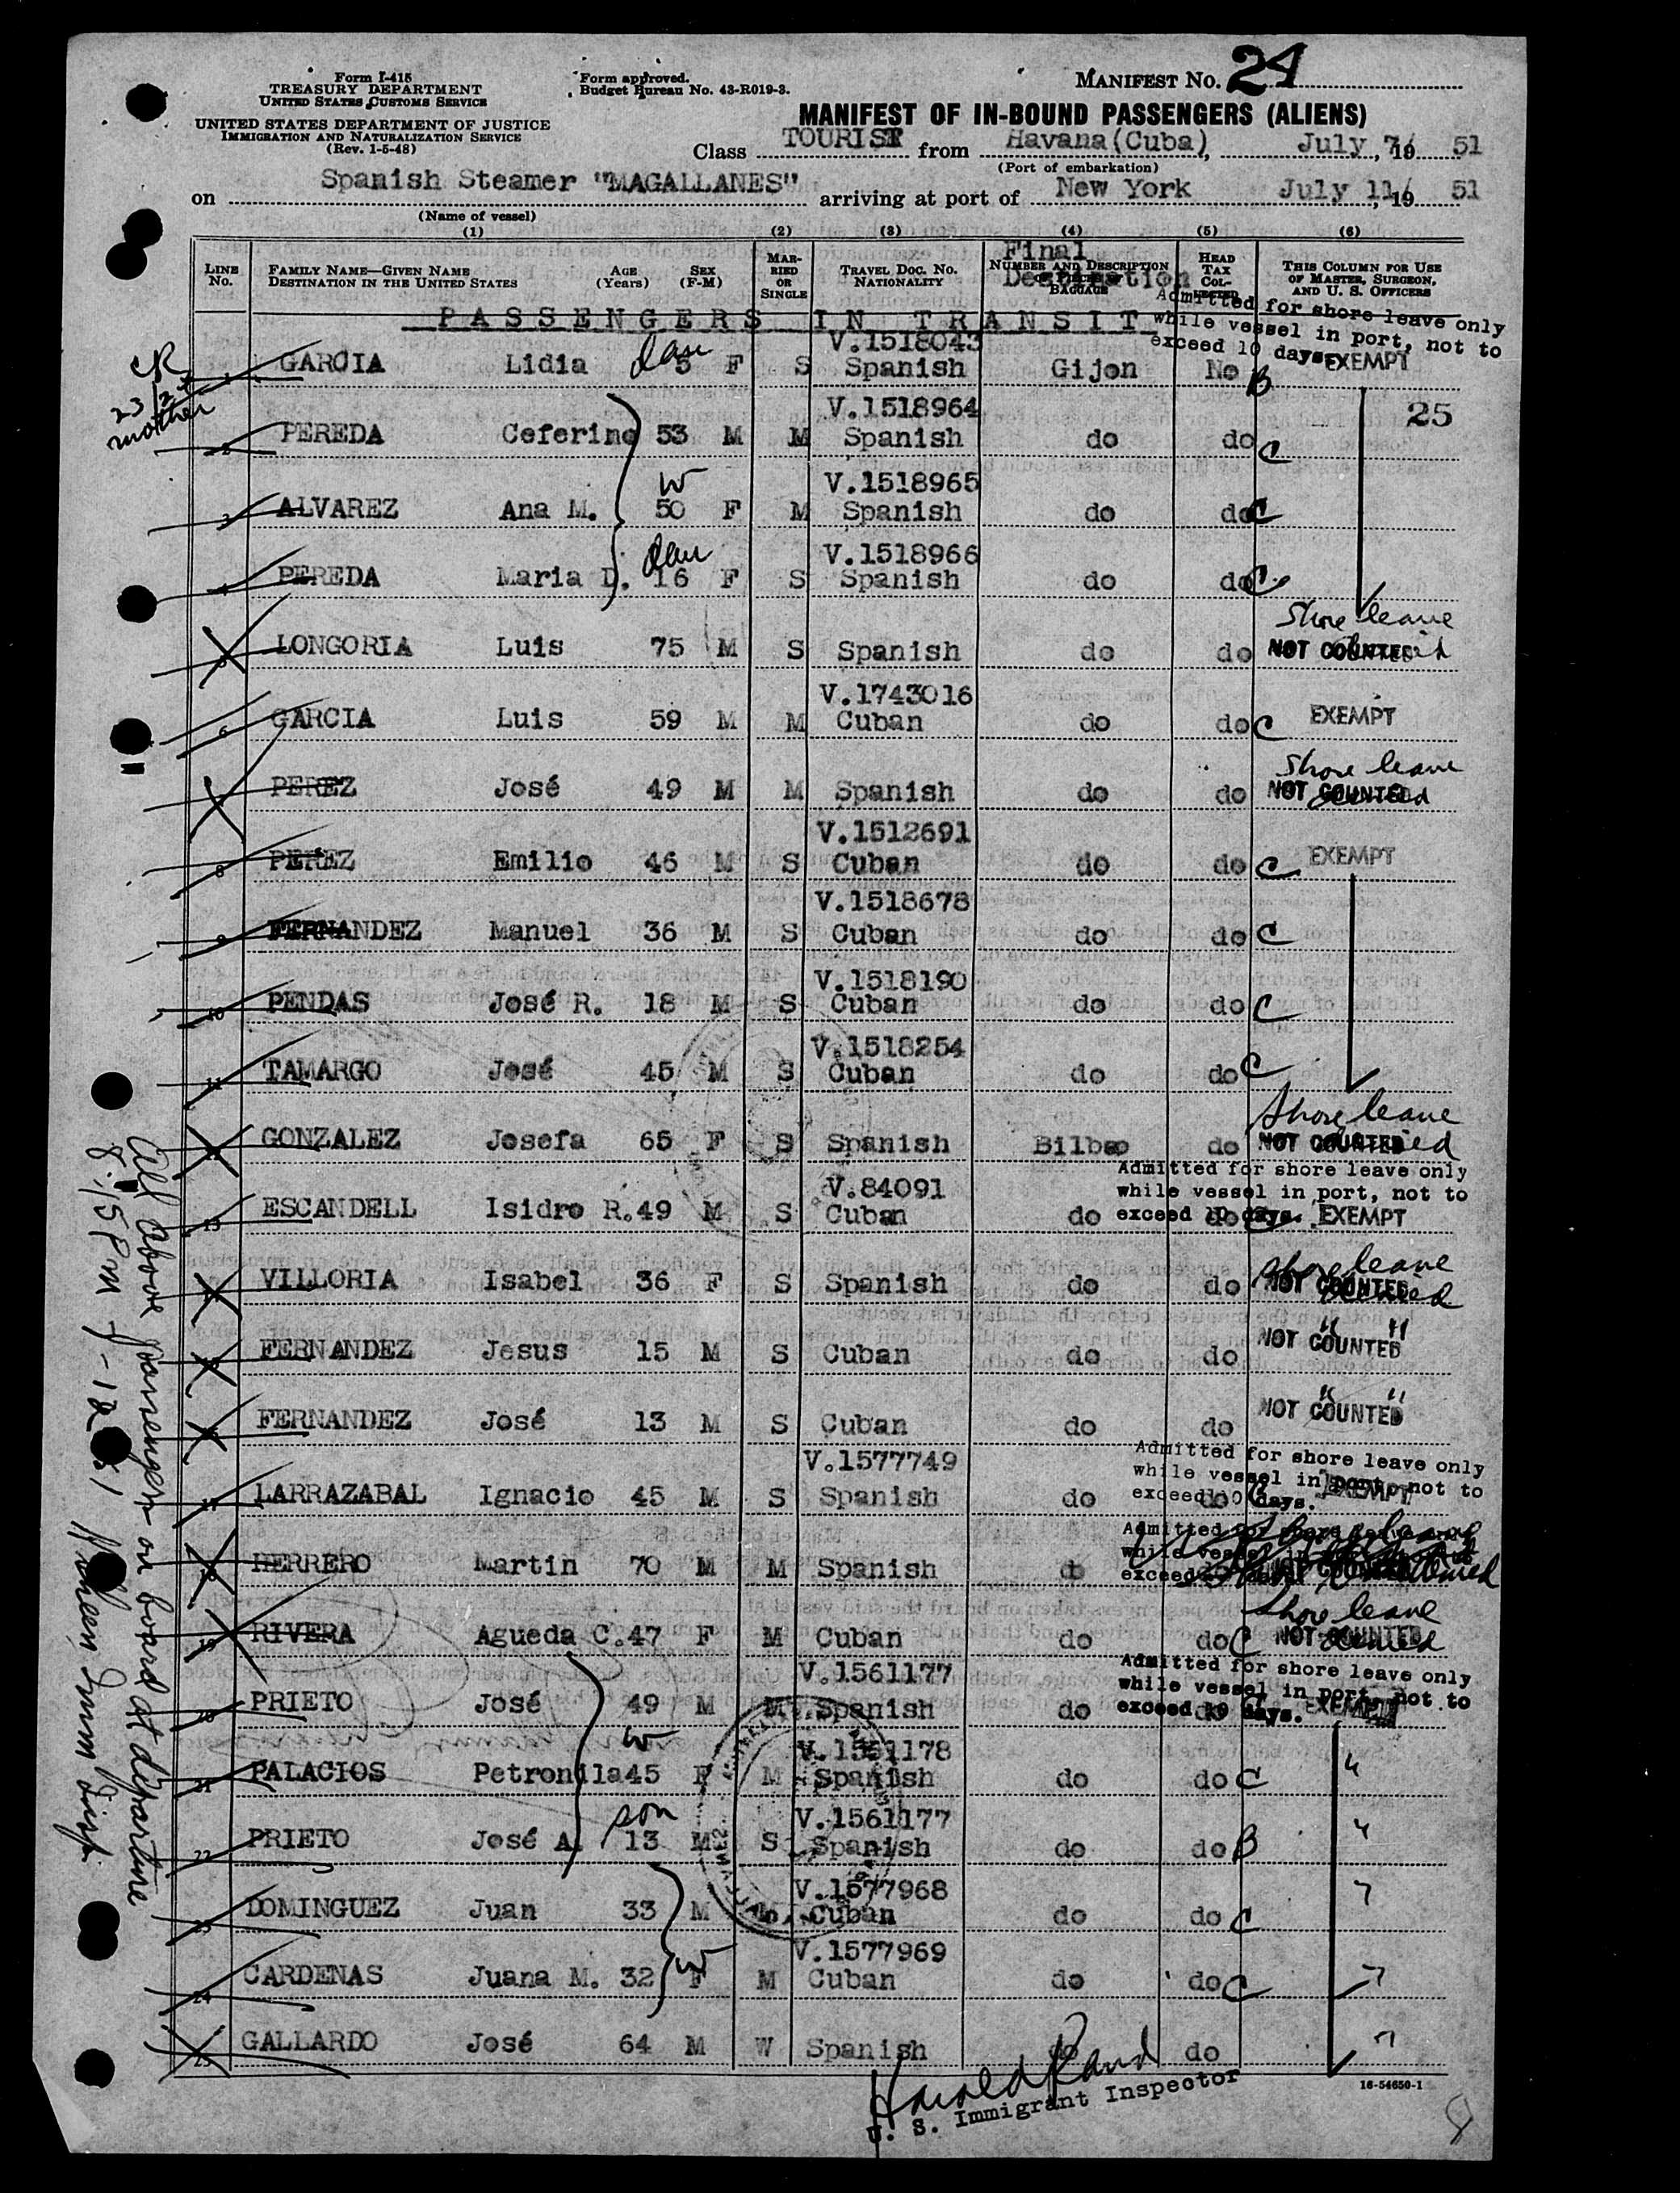 Form I-415
TREASURY DEPARTMENT
UNITED STATES CUSTOMS SERVICE
UNITED STATES DEPARTMENT OF JUSTICE
IMMIGRATION AND NATURALIZATION SERVICE
(Rev. 1-5-48)
Form approved.
Budget Bureau No. 43-R019-3.
MANIFEST NO. 24
MANIFEST OF IN-BOUND PASSENGERS (ALIENS)
Class TOURIST from Havana(Cuba), July 7/ , 19 51
(Port of embarkation)
on Spanish Steamer "MAGALLANES" arriving at port of New York July 11/ , 19 51
(Name of vessel)
(1) (2) (3) (4) (5) (6)
LINE No. FAMILY NAME—GIVEN NAME DESTINATION IN THE UNITED STATES AGE (Years) SEX (F-M) MARRIED OR SINGLE TRAVEL DOC. NO. NATIONALITY NUMBER AND DESCRIPTION OF PIECES OF BAGGAGE Final Destination HEAD TAX COLLECTED THIS COLUMN FOR USE OF MASTER, SURGEON, AND U. S. OFFICERS
PASSENGERS IN TRANSIT
Admitted for shore leave only
while vessel in port, not to
exceed 10 days.
V.1518043
1 GARCIA Lidia dau 5 F S Spanish Gijon No B EXEMPT
23 mother
25
V.1518964
2 PEREDA Ceferino 53 M M Spanish do do C
V.1518965
3 ALVAREZ Ana M. W 50 F M Spanish do do C
V.1518966
4 PEREDA Maria D. dau 16 F S Spanish do do C
5 LONGORIA Luis 75 M S Spanish do do Shore leave NOT COUNTED
V.1743016
6 GARCIA Luis 59 M M Cuban do do C EXEMPT
7 PEREZ José 49 M M Spanish do do Shore leave denied NOT COUNTED
V.1512691
8 PEREZ Emilio 46 M S Cuban do do C EXEMPT
V.1518678
9 FERNANDEZ Manuel 36 M S Cuban do do C
V.1518190
10 PENDAS José R. 18 M S Cuban do do C
V.1518254
11 TAMARGO José 45 M S Cuban do do C
12 GONZALEZ Josefa 65 F S Spanish Bilbao do Shore leave denied NOT COUNTED
Admitted for shore leave only
while vessel in port, not to
exceed 10 days.
V.84091
13 ESCANDELL Isidro R. 49 M S Cuban do do C EXEMPT
14 VILLORIA Isabel 36 F S Spanish do do Shore leave denied NOT COUNTED
15 FERNANDEZ Jesus 15 M S Cuban do do " " NOT COUNTED
16 FERNANDEZ José 13 M S Cuban do do " " NOT COUNTED
Admitted for shore leave only
while vessel in port, not to
exceed 10 days.
V.1577749
17 LARRAZABAL Ignacio 45 M S Spanish do do C EXEMPT
Admitted for shore leave
while vessel
exceed
18 HERRERO Martin 70 M M Spanish do
19 RIVERA Agueda C. 47 F M Cuban do do C Shore leave denied NOT COUNTED
Admitted for shore leave only
while vessel in port, not to
exceed 10 days.
V.1561177
20 PRIETO José 49 M M Spanish do do EXEMPT
V.1561178
21 PALACIOS Petronila W 45 F M Spanish do do C "
V.1561177
22 PRIETO José A. son 13 M S Spanish do do B "
V.1577968
23 DOMINGUEZ Juan 33 M M Cuban do do C "
V.1577969
24 CARDENAS Juana M. 32 W F M Cuban do do C "
25 GALLARDO José 64 M W Spanish do do "
Harold Rand
U. S. Immigrant Inspector
16-54650-1
All above passengers on board at departure
8:15 PM 7-12-51
Imm Insp.